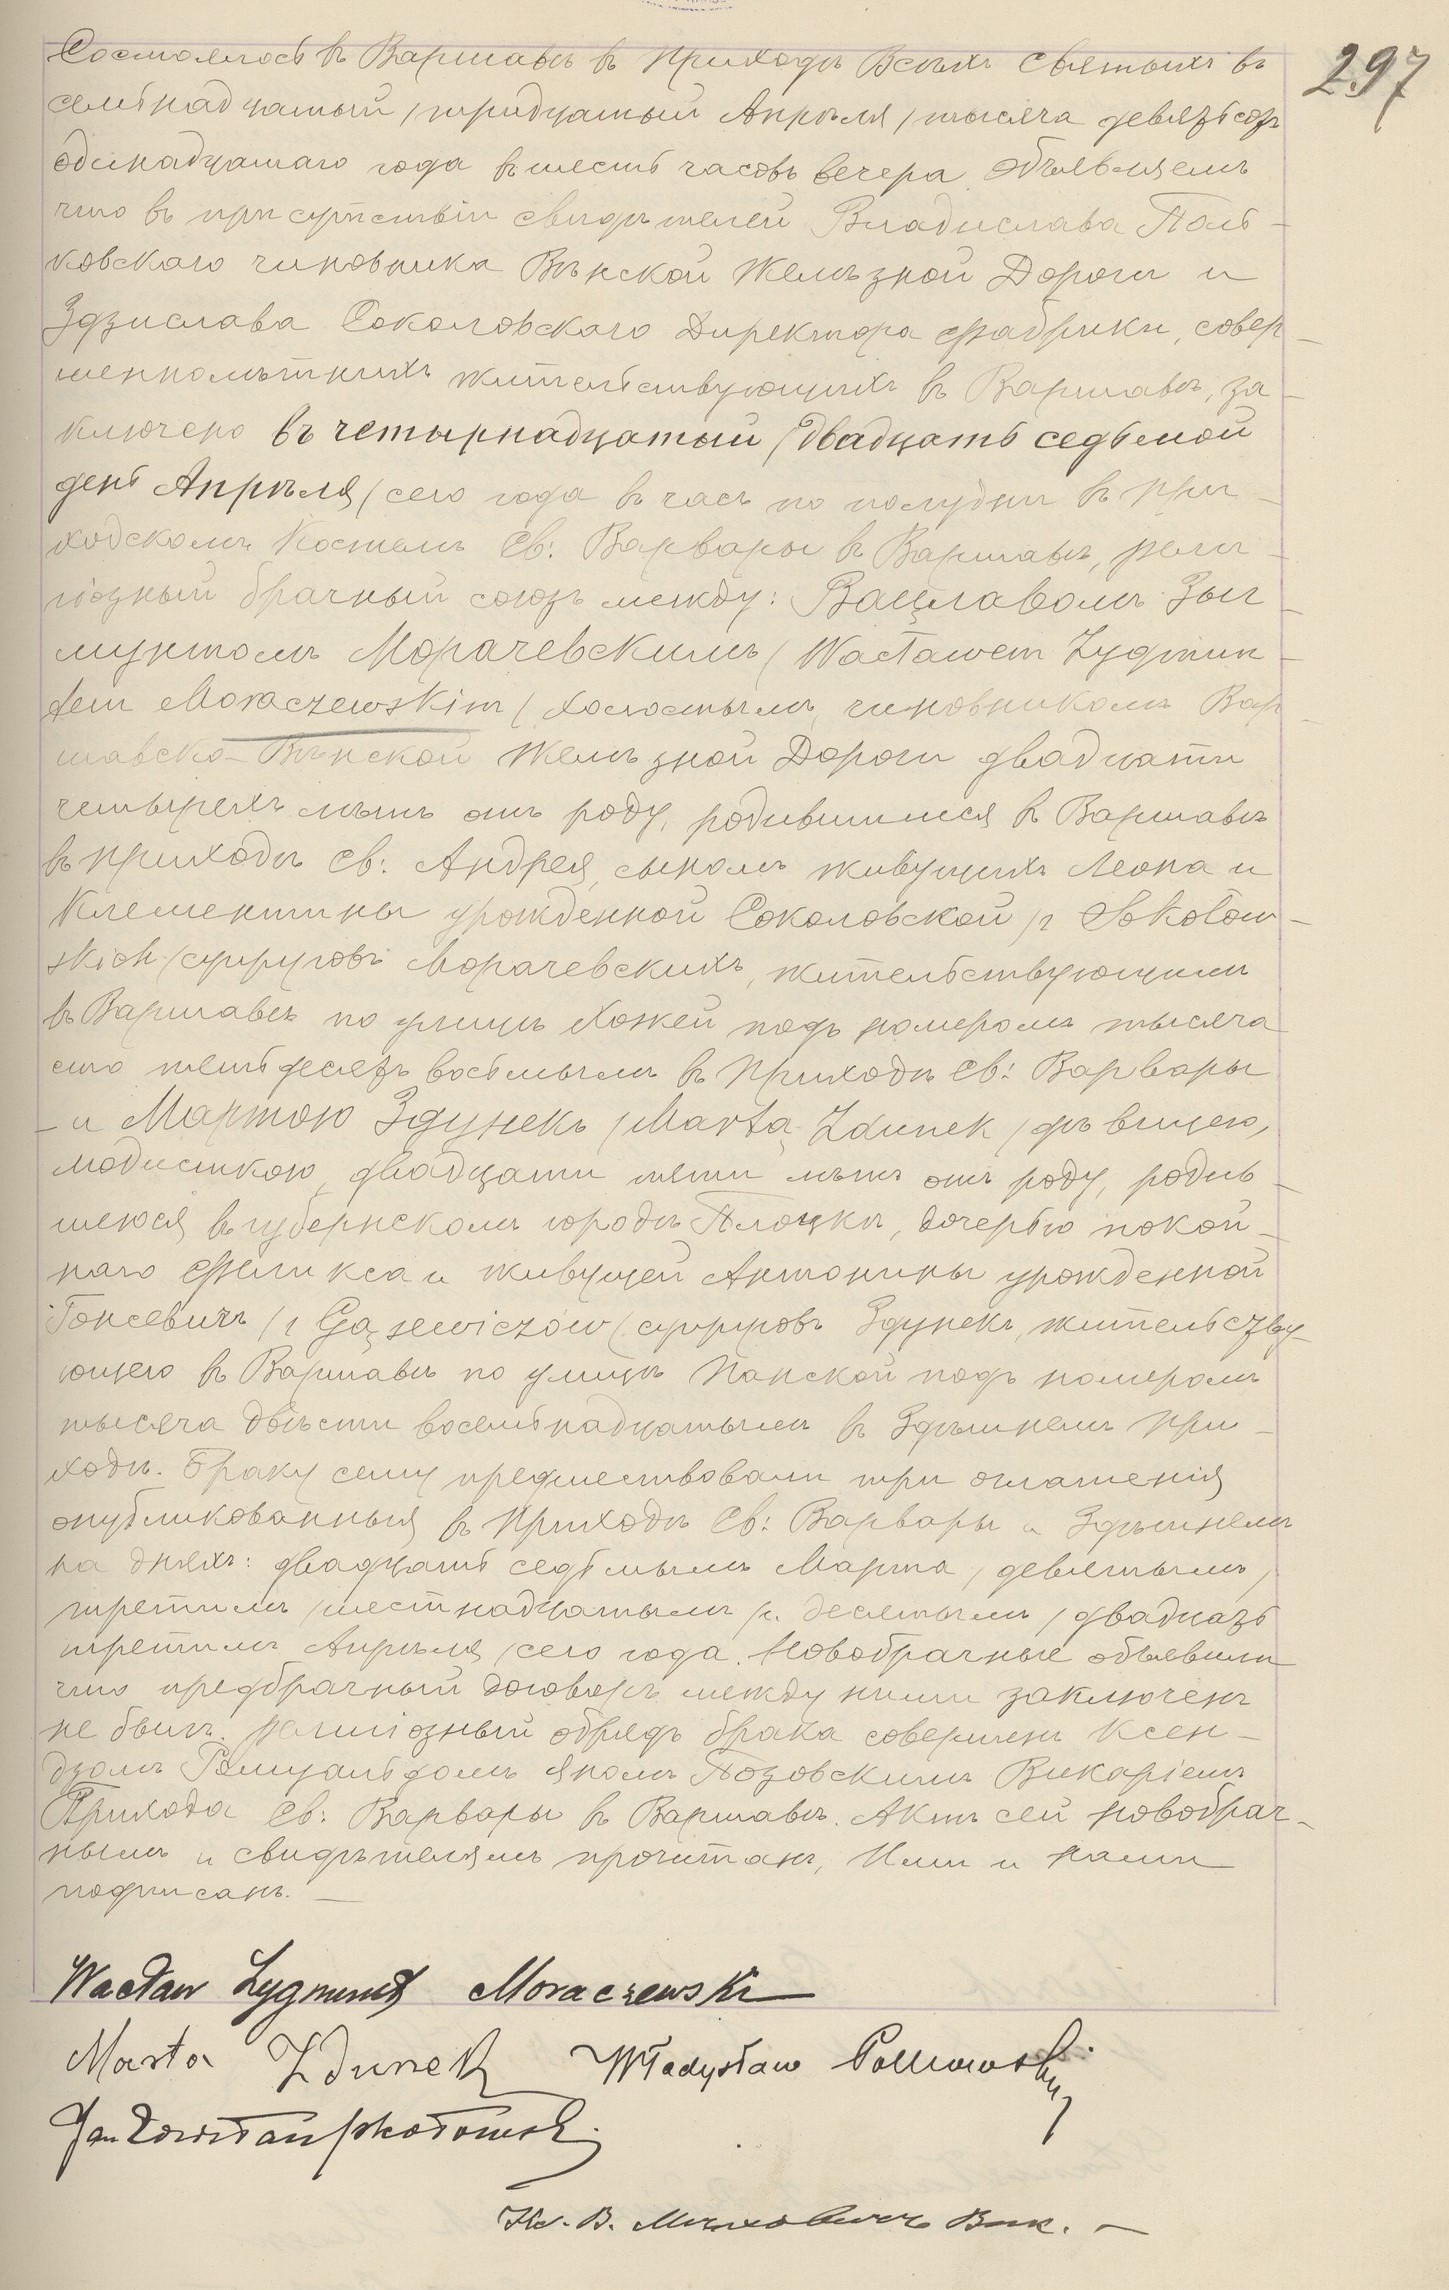 297
Состоялось въ Варшавѣ въ Приходѣ Всѣхъ Святыхъ въ
семьнадцатый /тридцатый Апрѣля/ тысяча девятьсотъ
одинадцатаго года въ шесть часовъ вечера. Объявляемъ
что въ присутствіи свидѣтелей Владислава Поль-
ковскаго чиновника Вѣнской Желѣзной Дороги и
Здзислава Соколовскаго Директора фабрики, совер-
шеннолѣтнихъ жительствующихъ въ Варшавѣ, за-
ключено въ четырнадцатый /двадцать седьмой
день Апрѣля/ сего года въ часъ по полудни въ При-
ходскомъ Костелѣ Св: Варвары въ Варшавѣ, рели-
гіозный брачный союзъ между: Вацлавомъ Зыг-
мунтомъ Морачевскимъ /Wacławem Zygmun-
tem Moraczewskim/ холостымъ, чиновникомъ Вар-
шавско-Вѣнской Желѣзной Дороги двадцати
четырехъ лѣтъ отъ роду, родившимся въ Варшавѣ
въ приходѣ Св: Андрея, сыномъ живущихъ Леона и
Клементины урожденной Соколовской /z Sokołow-
skich/ супруговъ Морачевскихъ, жительствующимъ
въ Варшавѣ по улицѣ Хожей подъ номеромъ тысяча
сто пятьдесятъ восьмымъ въ Приходѣ Св: Варвары
- и Мартою Здунекъ /Martą Zdunek/ дѣвицею,
модисткою, двадцати пяти лѣтъ отъ роду, родив-
шеюся въ губернскомъ городѣ Плоцкѣ, дочерью покой-
наго Феликса и живущей Антонины урожденной
Гонсевичъ /z Gąsewiczów/ супруговъ Здунекъ, жительству-
ющею въ Варшавѣ по улицѣ Панской подъ номеромъ
тысяча двѣсти восемьнадцатымъ въ Здѣшнемъ При-
ходѣ. Браку сему предшествовали три оглашенія
опубликованныя въ Приходѣ Св: Варвары и Здѣшнемъ
на дняхъ: двадцать седьмымъ Марта /девятымъ/
третьимъ /шестнадцатымъ/ и десятымъ /двадцать
третьимъ Апрѣля/ сего года. Новобрачные объявили
что предбрачный договоръ между ними заключенъ
не былъ. Религіозный обрядъ брака совершенъ Ксен-
дзомъ Ромуальдомъ Яномъ Позовскимъ Викаріемъ
Прихода Св: Варвары въ Варшавѣ. Актъ сей новобрач-
нымъ и свидѣтелямъ прочитанъ, Ими и нами
подписанъ. -
Wacław Zygmunt Moraczewski
Marta Zdunek Władysław
Jan
Кс. В. Вик. -